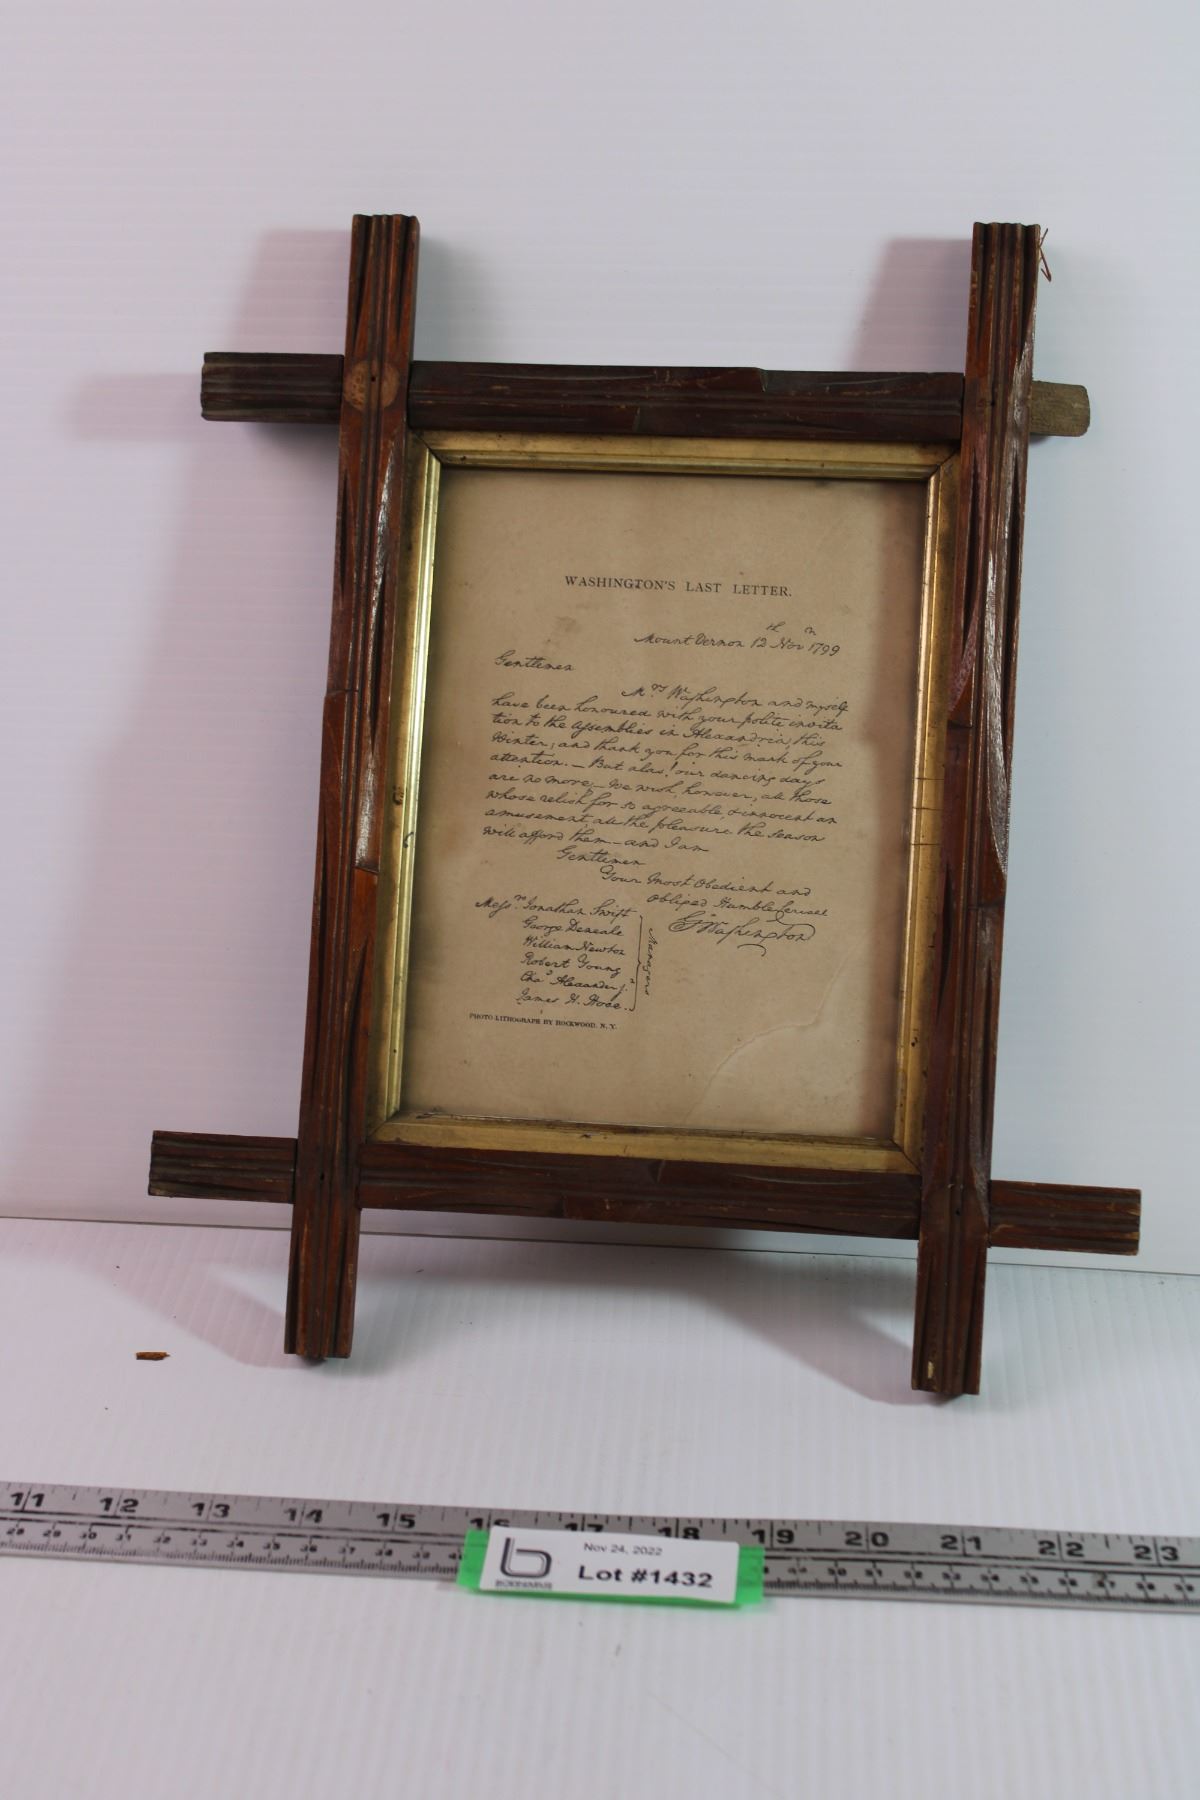 WASHINGTON'S LAST LETTER.
Mount Vernon 12th Novm 1799
Gentlemen
Mrs Washington and myself
have been honoured with your polite invita
tion to the assemblies in Alexandria, this
Winter; and thank you for this mark of your
attention. — But alas! our dancing days
are no more; — we wish, however, all those
whose relish for so agreeable, & innocent an
amusement, all the pleasure the season
will afford them. — and I am
Gentlemen
Your Most Obedient and
Obliged Humble Servant
Go Washington
Messrs Jonathan Swift
George Deneale
William Newton
Robert Young
Chas Alexander jr
James H. Hooe.
Managers
PHOTO LITHOGRAPH BY ROCKWOOD. N. Y.
11 12 13 14 15 16 17 18 19 20 21 22 23
Nov 24, 2022
Lot #1432